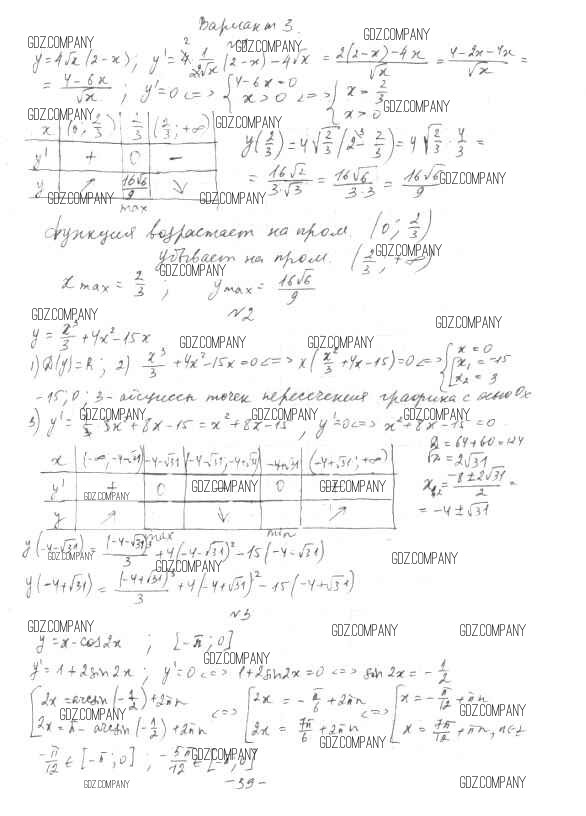 Вариант 3.
№1
y = 4√x (2-x); y' = 4 · 1/(2√x) (2-x) - 4√x = (2(2-x) - 4x)/√x = (4-2x-4x)/√x =
= (4-6x)/√x ; y' = 0 <=> { 4-6x=0 x>0 <=> { x = 2/3 x>0
x | (0; 2/3) | 2/3 | (2/3; +∞)
y' | + | 0 | -
y | ↗ | 16√6/9 max | ↘
y(2/3) = 4√(2/3) (2 - 2/3) = 4√(2/3) · 4/3 =
= 16√2/(3·√3) = 16√6/(3·3) = 16√6/9
Функция возрастает на пром. (0; 2/3)
убывает на пром. (2/3; +∞)
x max = 2/3 ; y max = 16√6/9
№2
y = x³/3 + 4x² - 15x
1) D(y) = R; 2) x³/3 + 4x² - 15x = 0 <=> x(x²/3 + 4x - 15) = 0 <=> [ x = 0 x₁ = -15 x₂ = 3
-15; 0; 3 - абсциссы точек пересечения графика с осью Ox
3) y' = 1/3 · 3x² + 8x - 15 = x² + 8x - 15 , y' = 0 <=> x² + 8x - 15 = 0
D = 64 + 60 = 124
√D = 2√31
x₁,₂ = (-8 ± 2√31)/2 =
= -4 ± √31
x | (-∞; -4-√31) | -4-√31 | (-4-√31; -4+√31) | -4+√31 | (-4+√31; +∞)
y' | + | 0 | - | 0 | +
y | ↗ | max | ↘ | min | ↗
y(-4-√31) = (-4-√31)³/3 + 4(-4-√31)² - 15(-4-√31)
y(-4+√31) = (-4+√31)³/3 + 4(-4+√31)² - 15(-4+√31)
№3
y = x - cos2x ; [-π; 0]
y' = 1 + 2sin2x ; y' = 0 <=> 1 + 2sin2x = 0 <=> sin2x = -1/2
[ 2x = arcsin(-1/2) + 2πn 2x = π - arcsin(-1/2) + 2πn <=> [ 2x = -π/6 + 2πn 2x = 7π/6 + 2πn <=> [ x = -π/12 + πn x = 7π/12 + πn, n∈Z
-π/12 ∈ [-π; 0] ; -5π/12 ∈ [-π; 0]
-39-
GDZ.COMPANY